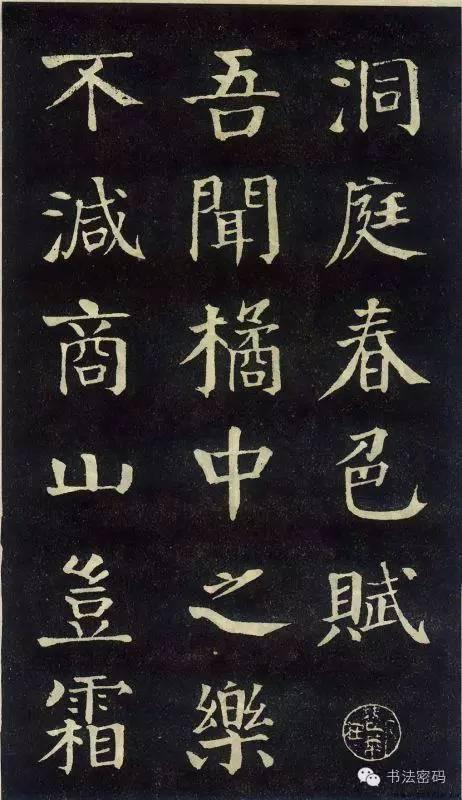 洞庭春色賦
吾聞橘中之樂
不減商山豈霜
书法密码